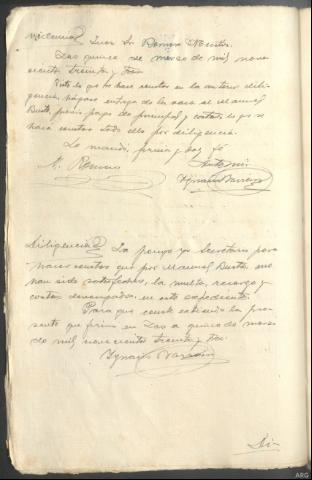 Providencia Juez Sr Romero Montes.
Zas quince de marzo de mil nove
cientos treinta y tres
Visto lo que se hace constar en la anterior dili
gencia, hágase entrega de la vaca al Manuel
Busto, previo pago de principal y costas, lo que se
hará constar todo ello por diligencia.
Lo mandó, firma y doy fé
M. Romero Ante mi
Ignacio Varreiro
Diligencia La pongo yo Secretario para
hacer constar que por Manuel Busto, me
han sido satisfechas, la multa, recargo y
costas devengadas en este expediente.
Para que conste extiendo la pre
sente que firmo en Zas a quince de marzo
de mil novecientos treinta y tres
Ignacio Varreiro
Di-
ARG